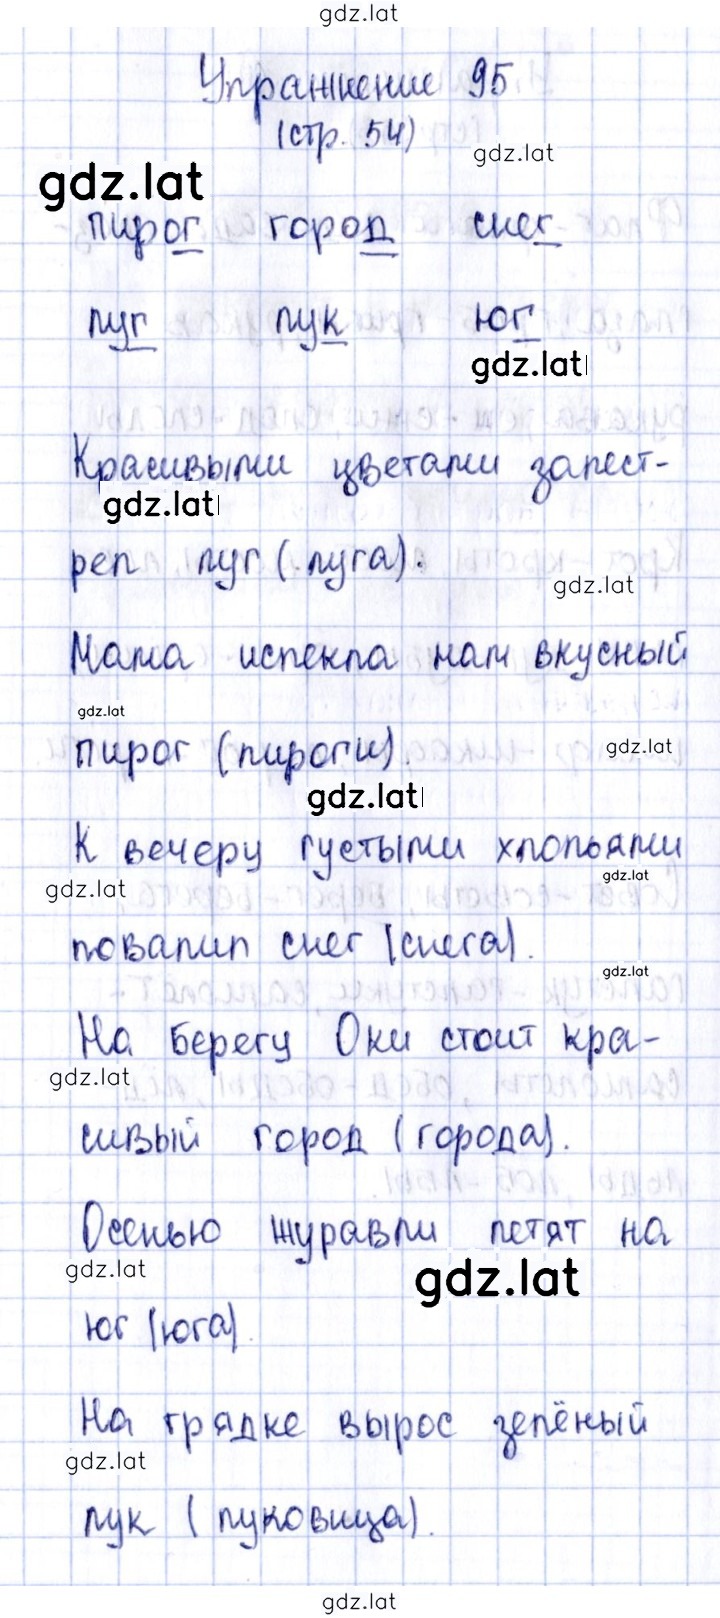 gdz.lat
Упражнение 95
(стр. 54)
gdz.lat
gdz.lat
пирог город снег
луг лук юг
gdz.lat
Красивыми цветами запест-
gdz.lat
рел луг (луга).
gdz.lat
Мама испекла нам вкусный
gdz.lat
пирог (пироги).
gdz.lat
gdz.lat
К вечеру густыми хлопьями
gdz.lat
gdz.lat
повалил снег (снега).
gdz.lat
На берегу Оки стоит кра-
gdz.lat
сивый город (города).
Осенью журавли летят на
gdz.lat
gdz.lat
юг (юга).
На грядке вырос зелёный
gdz.lat
лук (луковица).
gdz.lat